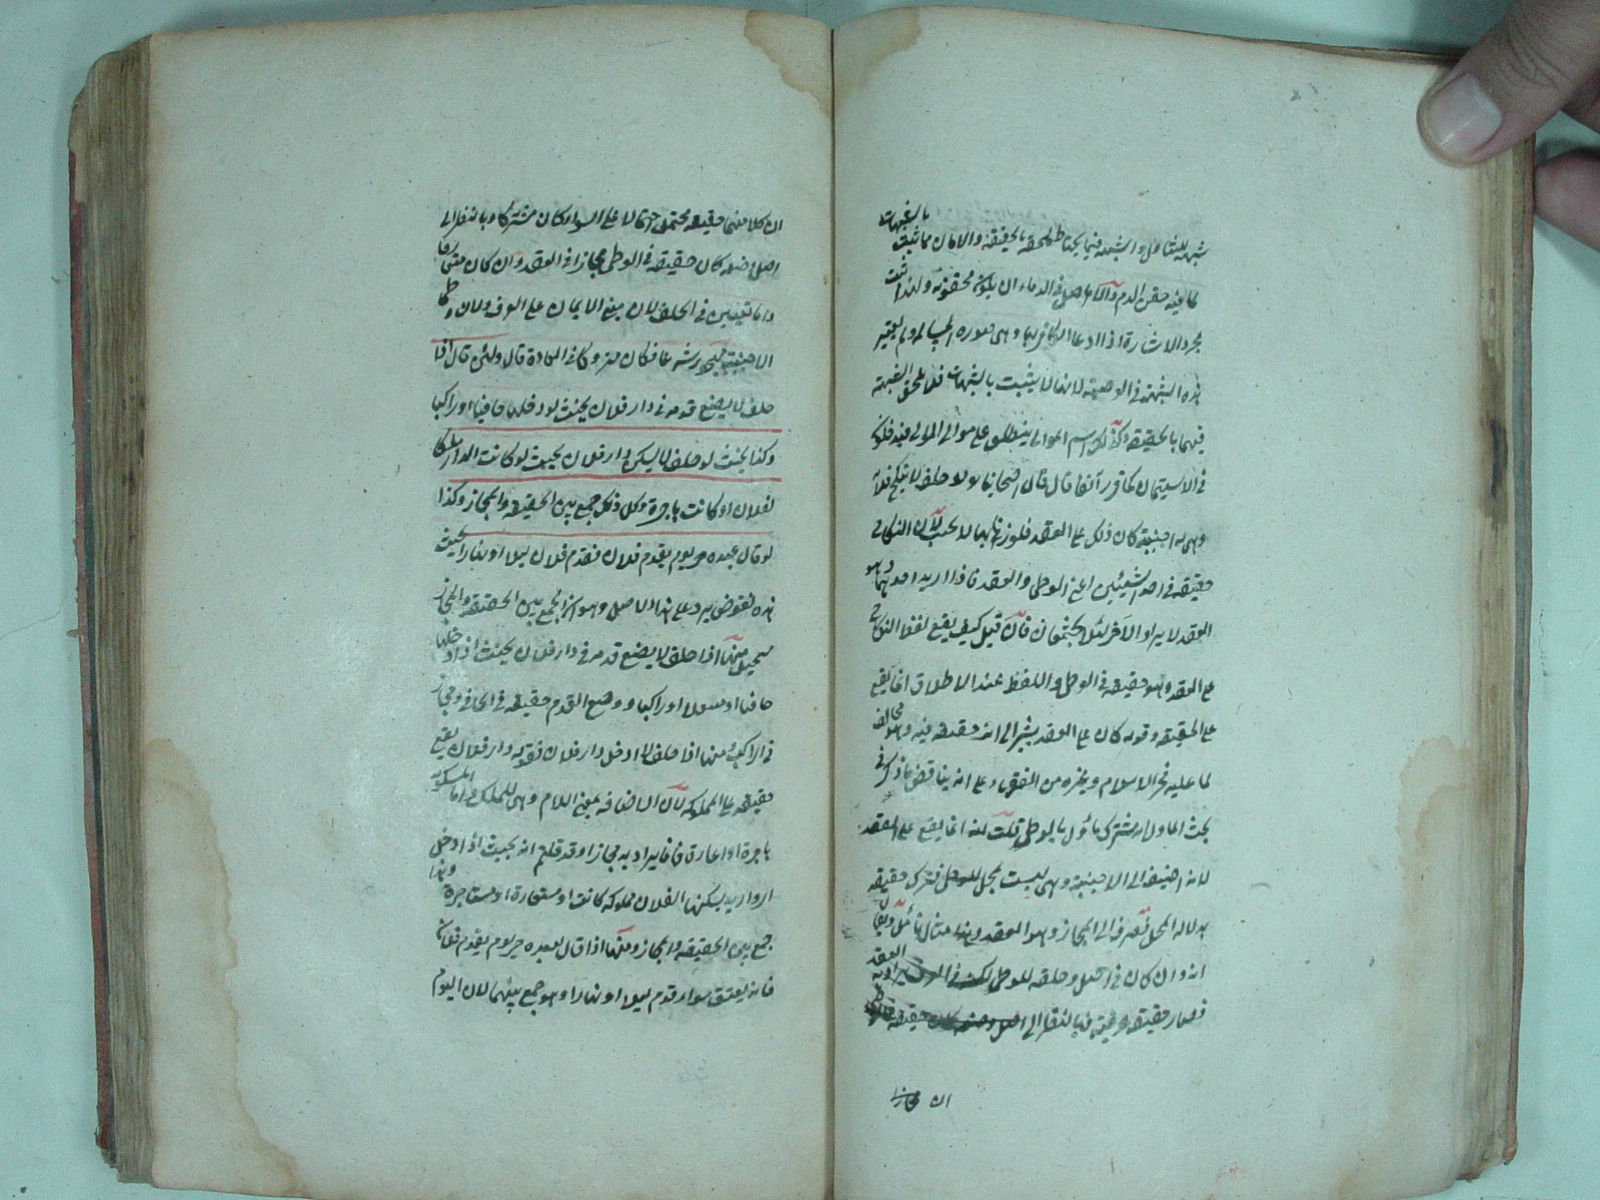 شبهة للتناول والشبهة فيما يحتاط ملحقة بالحقيقة والامان مما يثبت بالشبهات
لما فيه حقن الدم والاصل في الدماء ان يكون محقونة ولهذا يثبت
بمجرد الاشارة اذا دعا الكافر بها وهي صورة المسالمة ولم يعتبر
هذه الشبهة في الوصية لانها لا يثبت بالشبهات فلا يلحق الشبهة
فيهما بالحقيقة وكذلك اسم الموالي ينطلق على موالي الموالي فيدخلون
في الاستيمان كما قرر آنفا قال قال اصحابنا لو حلف لا ينكح فلانة
وهي اجنبية كان ذلك على العقد فلو زنى بها لا يحنث لان النكاح
حقيقة في احد الشيئين اعني الوطي والعقد فاذا اريد احدهما وهو
العقد لا يراد الآخر لئلا يجتمعان فان قيل كيف يقع لفظ النكاح
على العقد وهو حقيقة في الوطي واللفظ عند الاطلاق انما يقع
على الحقيقة وقوله كان على العقد يشير الى انه حقيقة فيه وهو مخالف
لما عليه فخر الاسلام وغيره من الفقهاء على انه يناقض ما ذكر في
بحث المأول انه مشترك مأول بالوطي قلت انه انما يقع على العقد
لانه اضيف الى الاجنبية وهي ليست بمحل للوطي فترك حقيقة
بدلالة المحل فصرف الى المجاز وهو العقد وهذا مثال تأمل
انه وان كان في اصل وحلقه للوطي لكن في العرف يراد به العقد
فصار حقيقة عرفية فبالنظر الى حقيقة
ان
ان كلا منهما حقيقة محتمل احتمالا على السوا كان مشتركا وبالنظر الى
اصل وضعه كان حقيقة في الوطي مجازا في العقد وان كان
وانما تعين في الحلف لان مبنى الايمان على العرف ولان وطئ
الاجنبية مهجور شرعا فكان متروكا في العادة قال ولئن قال اذا
حلف لا يضع قدمه في دار فلان يحنث لو دخلها حافيا او راكبا
وكذا يحنث لو حلف لا يسكن دار فلان يحنث لو كانت الدار ملكا
لفلان او كانت باجرة وكل ذلك جمع بين الحقيقة والمجاز وكذا
لو قال عبده حر يوم يقدم فلان فقدم فلان ليلا او نهارا يحنث
هذه نقوض يرد على هذا الاصل وهو انه الجمع بين الحقيقة والمجاز
مستحيل منها اذا حلف لا يضع قدمه في دار فلان يحنث اذا دخلها
حافيا او منتعلا او راكبا ووضع القدم حقيقة في الحافي ومجاز
في الراكب ومنها اذا حلف لا ادخل دار فلان فقوله دار فلان يقع
حقيقة على المملوكة لان الاضافة بمعنى اللام وهي للملك واما المسكونة
باجرة او اعارة فانما يراد به مجازا وقد قلتم انه يحنث اذا دخل
دارا يسكنها الفلان مملوكة كانت او مستعارة او مستاجرة وهذا
جمع بين الحقيقة والمجاز ومنها اذا قال لعبده حر يوم يقدم فلان
فانه يعتق سواء قدم ليلا او نهارا وهو جمع بينهما لان اليوم